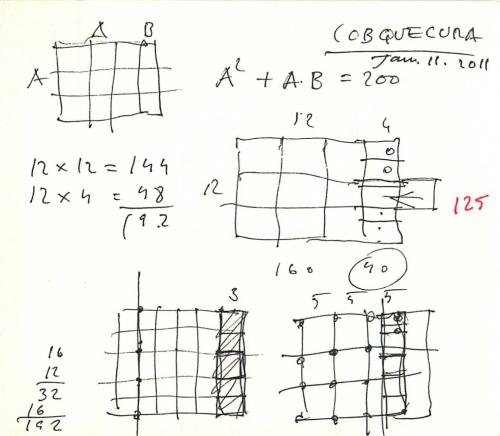 COBQUECURA
Jan. 11. 2011
A B
A
A² + A.B = 200
12 × 12 = 144
12 × 4 = 48
192
12 4
12
125
160 40
3
5 5 5
16
12
32
16
192